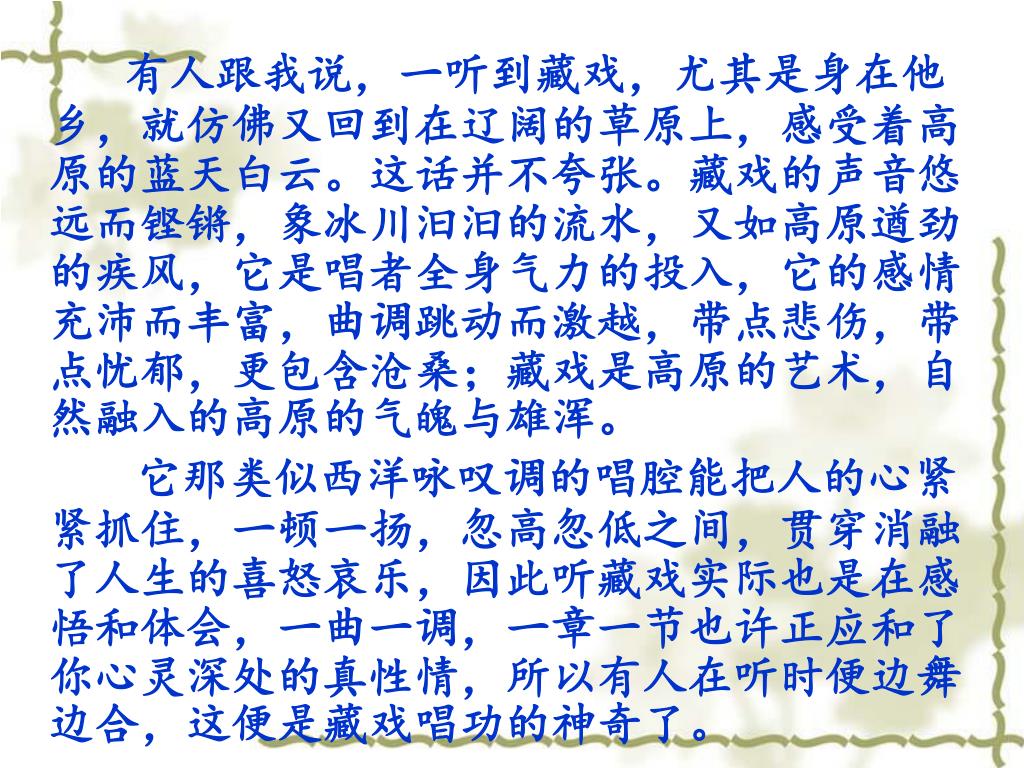 有人跟我说，一听到藏戏，尤其是身在他
乡，就仿佛又回到在辽阔的草原上，感受着高
原的蓝天白云。这话并不夸张。藏戏的声音悠
远而铿锵，象冰川汩汩的流水，又如高原遒劲
的疾风，它是唱者全身气力的投入，它的感情
充沛而丰富，曲调跳动而激越，带点悲伤，带
点忧郁，更包含沧桑；藏戏是高原的艺术，自
然融入的高原的气魄与雄浑。
它那类似西洋咏叹调的唱腔能把人的心紧
紧抓住，一顿一扬，忽高忽低之间，贯穿消融
了人生的喜怒哀乐，因此听藏戏实际也是在感
悟和体会，一曲一调，一章一节也许正应和了
你心灵深处的真性情，所以有人在听时便边舞
边合，这便是藏戏唱功的神奇了。